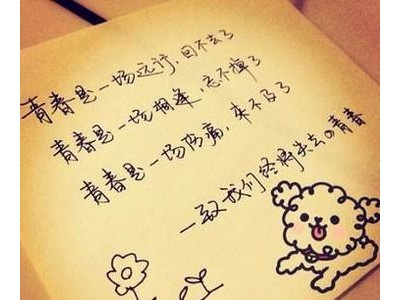 青春是一场远行，回不去了
青春是一场相逢，忘不掉了
青春是一场伤痛，来不及了
一致我们终将失去の青春